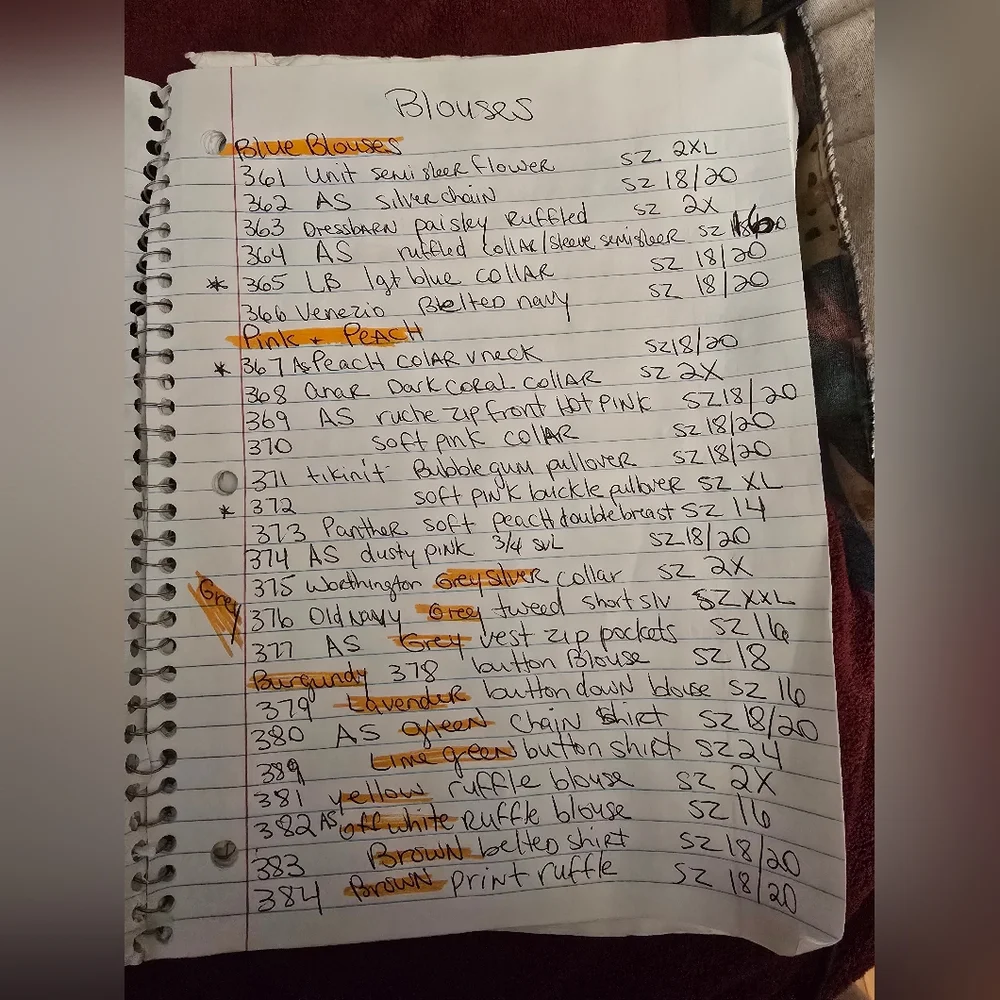 Blouses
Blue Blouses
361 Unit semi sleer flower SZ 2XL
362 AS silver chain SZ 18/20
363 DressBARN paisley Ruffled SZ 2X
364 AS ruffled collAR/sleeve semisleer SZ
* 365 LB lgt blue COLLAR SZ 18/20
366 Venezio Belted navy SZ 18/20
Pink + PeACH
* 367 AS PeACH COLAR V neck SZ 18/20
368 anar DARK CORAL COLLAR SZ 2X
369 AS ruche zip front Hot PINK SZ 18/20
370 soft pink collAR SZ 18/20
371 tikinit Bubble gum pullover SZ 18/20
* 372 soft PINK buckle pullover SZ XL
373 PantheR soft peach double breast SZ 14
374 AS dusty pink 3/4 SVL SZ 18/20
Grey 375 Worthington Grey Silver collar SZ 2X
376 Old NAVY Grey tweed short slv SZ XXL
377 AS Grey vest zip pockets SZ 16
Burgundy 378 button Blouse SZ 18
379 Lavender button down blouse SZ 16
380 AS green Chain Shirt SZ 18/20
389 Lime green button shirt SZ 24
381 yellow ruffle blouse SZ 2X
382 AS off white Ruffle blouse SZ 16
383 Brown belted shirt SZ 18/20
384 Brown print ruffle SZ 18/20